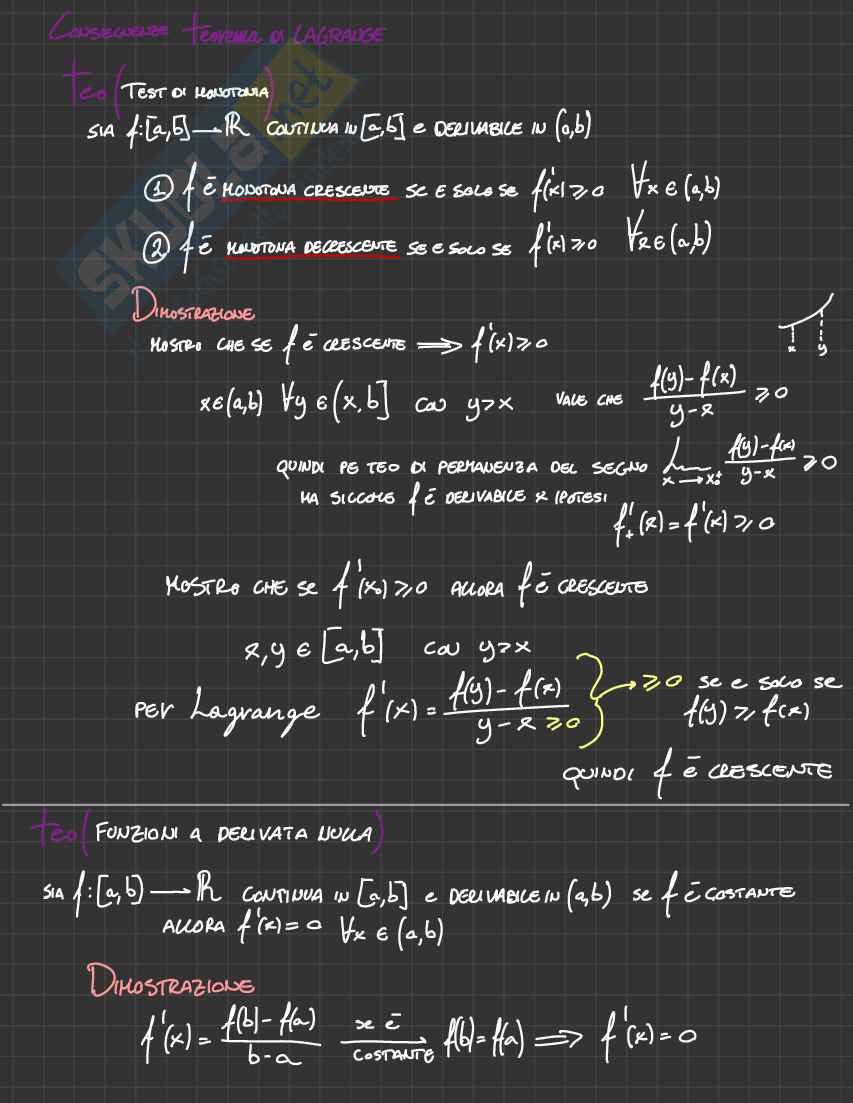 CONSEGUENZE teorema DI LAGRANGE
teo (TEST DI MONOTONIA)
SIA f:[a,b] → ℝ CONTINUA IN [a,b] e DERIVABILE IN (a,b)
① f è MONOTONA CRESCENTE SE E SOLO SE f'(x) ≥ 0 ∀x ∈ (a,b)
② f è MONOTONA DECRESCENTE SE E SOLO SE f'(x) ≥ 0 ∀x ∈ (a,b)
DIMOSTRAZIONE
MOSTRO CHE SE f è CRESCENTE ⟹ f'(x) ≥ 0
x y
x ∈ (a,b) ∀y ∈ (x,b] CON y>x VALE CHE (f(y) - f(x))/(y - x) ≥ 0
QUINDI PE TEO DI PERMANENZA DEL SEGNO lim x→x₀⁺ (f(y) - f(x))/(y - x) ≥ 0
MA SICCOME f è DERIVABILE x IPOTESI
f'₊(x) = f'(x) ≥ 0
MOSTRO CHE SE f'(x₀) ≥ 0 ALLORA f è CRESCENTE
x,y ∈ [a,b] CON y>x
PER Lagrange f'(x) = (f(y) - f(x))/(y - x ≥0) } → ≥0 SE E SOLO SE
f(y) ≥ f(x)
QUINDI f è CRESCENTE
teo (FUNZIONI A DERIVATA NULLA)
SIA f:[a,b) → ℝ CONTINUA IN [a,b] e DERIVABILE IN (a,b) SE f è COSTANTE
ALLORA f'(x) = 0 ∀x ∈ (a,b)
DIMOSTRAZIONE
f'(x) = (f(b) - f(a))/(b - a) se è COSTANTE → f(b) = f(a) ⟹ f'(x) = 0
SKUOLA.net